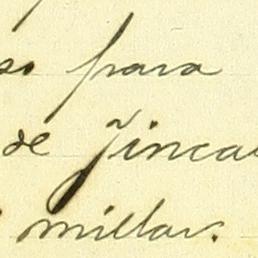 so para
de Fincas
millar.